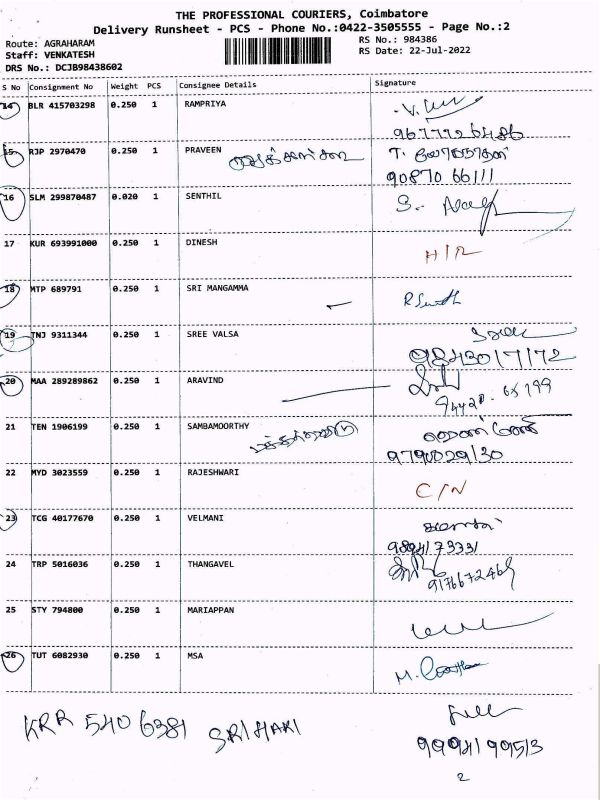 THE PROFESSIONAL COURIERS, Coimbatore
Delivery Runsheet - PCS - Phone No.:0422-3505555 - Page No.:2
Route: AGRAHARAM
Staff: VENKATESH
DRS No.: DCJB98438602
RS No.: 984386
RS Date: 22-Jul-2022
S No Consignment No Weight PCS Consignee Details Signature
14 BLR 415703298 0.250 1 RAMPRIYA
9677726486
15 RJP 2970470 0.250 1 PRAVEEN
90870 66111
16 SLM 299870487 0.020 1 SENTHIL
17 KUR 693991000 0.250 1 DINESH
18 MTP 689791 0.250 1 SRI MANGAMMA
19 TNJ 9311344 0.250 1 SREE VALSA
9843017172
20 MAA 289289862 0.250 1 ARAVIND
21 TEN 1906199 0.250 1 SAMBAMOORTHY
9790029130
22 MYD 3023559 0.250 1 RAJESHWARI C/N
23 TCG 40177670 0.250 1 VELMANI
9894173331
24 TRP 5016036 0.250 1 THANGAVEL
9176672469
25 STY 794800 0.250 1 MARIAPPAN
26 TUT 6082930 0.250 1 MSA
KRR 5406381 SRIHARI
9994199513
2